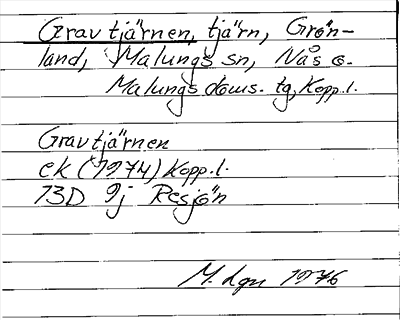 Gravtjärnen, tjärn, Grön-
land, Malungs sn, Nås o.
Malungs doms. tg, Kopp.l.
Gravtjärnen
ek (1974) Kopp.l.
13D 9j Resjön
M. 1976